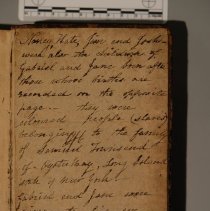 Nancy, Kate, Jim and Josh
were also the children of
Gabriel and Jane born
those whose births are
recorded on the opposite
page — they were
coloured people (slaves
belonging) to the family
of Samuel Townsend
of Oysterbay, Long Island
State of New York.
Gabriel and Jane were